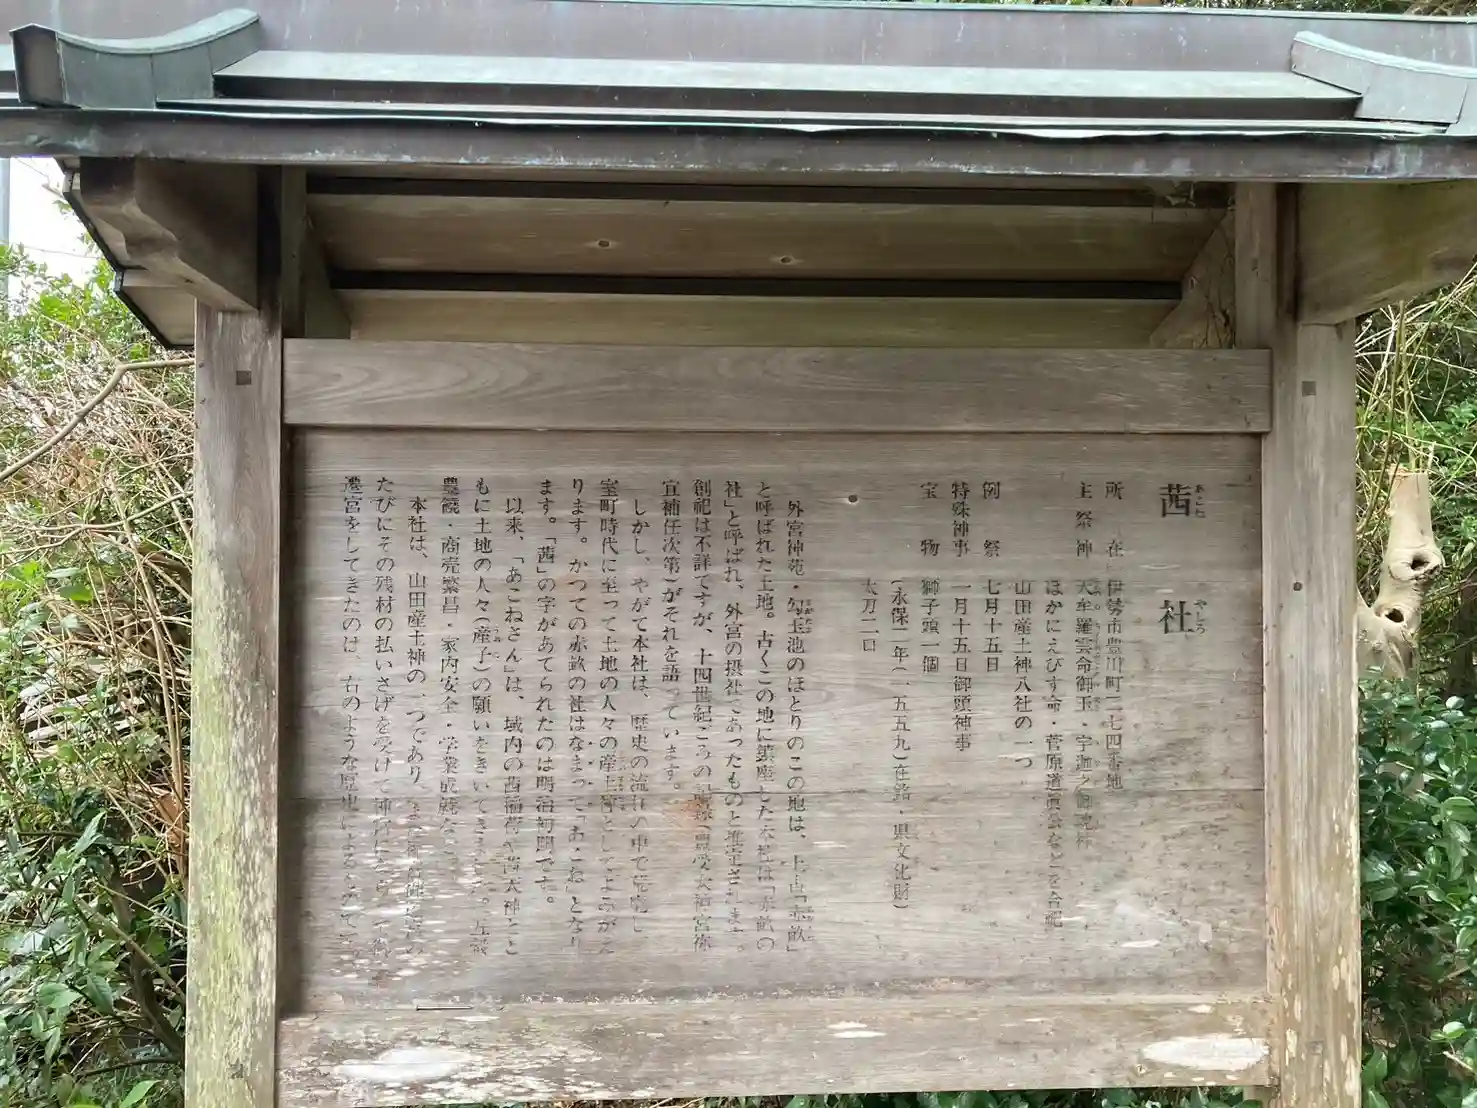 茜社
あこねやしろ
所在 伊勢市豊川町一七四番地
主祭神 天牟羅雲命御玉・宇迦之御魂神
ほかにえびす命・菅原道真公などを合祀
山田産土神八社の一つ
例祭 七月十五日
特殊神事 一月十五日御頭神事
宝物 獅子頭一個
(永保二年(一五五九)在銘・県文化財)
太刀二口
外宮神苑・勾玉池のほとりのこの地は、上古「赤畝」
と呼ばれた土地。古くこの地に鎮座した本社は「赤畝の
社」と呼ばれ、外宮の摂社であったものと推定されます。
創祀は不詳ですが、十四世紀ころの記録(豊受大神宮祢
宜補任次第)がそれを語っています。
しかし、やがて本社は、歴史の流れの中で荒廃し
室町時代に至って土地の人々の産土神としてよみがえ
ります。かつての赤畝の社はなまって「あこね」となり
ます。「茜」の字があてられたのは明治初期です。
以来、「あこねさん」は、域内の茜稲荷や茜天神とと
もに土地の人々(産子)の願いをきいてきました。五穀
豊饒・商売繁昌・家内安全・学業成就など
本社は、山田産土神の一つであり、
たびにその残材の払いさげを受け、神宮にならって御
遷宮をしてきたのは、右のような歴史によるものです